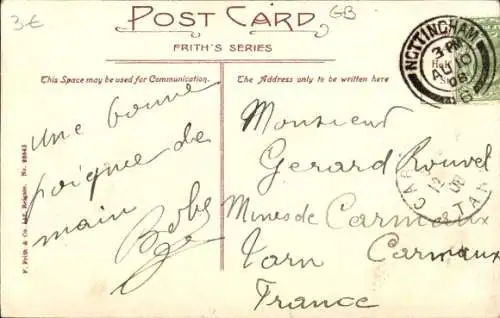 3€
GB
POST CARD
FRITH'S SERIES
This Space may be used for Communication.
The Address only to be written here
NOTTINGHAM
3 PM
AU 10
08
une bonne
poignee de
main
Bebe
Monsieur
Gerard Rouvel
Mines de Carmaux
Tarn Carmaux
France
CAR
12
08
TARN
F. Frith & Co. Ltd., Reigate. No.